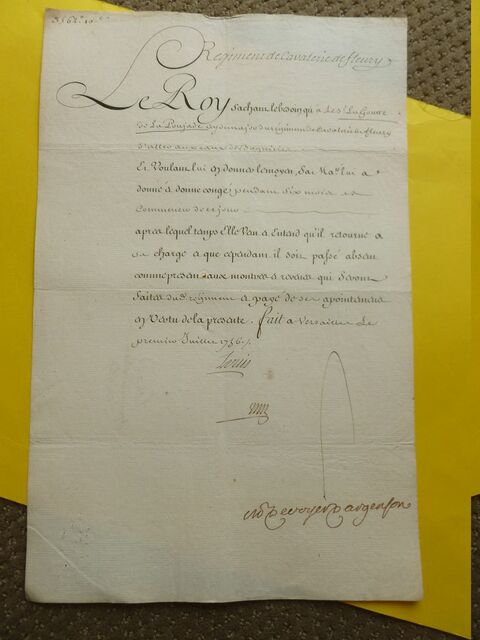 Regiment de Cavalerie de fleury
Le Roy Sachant le besoin qu'a le Sr. La Gouée
de La Poujade ayde major du regiment de Cavalerie de fleury
D'aller aux eaux de
Et Voulant lui en donner le moyen, Sa Maté. lui a
donné et donne congé pendant Six mois a
Commencer de ce jour
apres lequel temps Elle Veut et Entend qu'il retourne a
sa charge et que cependant il soit passé absent
comme present aux montres et reveues qui Seront
faites dud. regiment et payé de ses apointemens
en Vertu de la presente. fait a Versailles Le
premier Juillet 1756 ./.
Louis
M de Voyer D'argenson